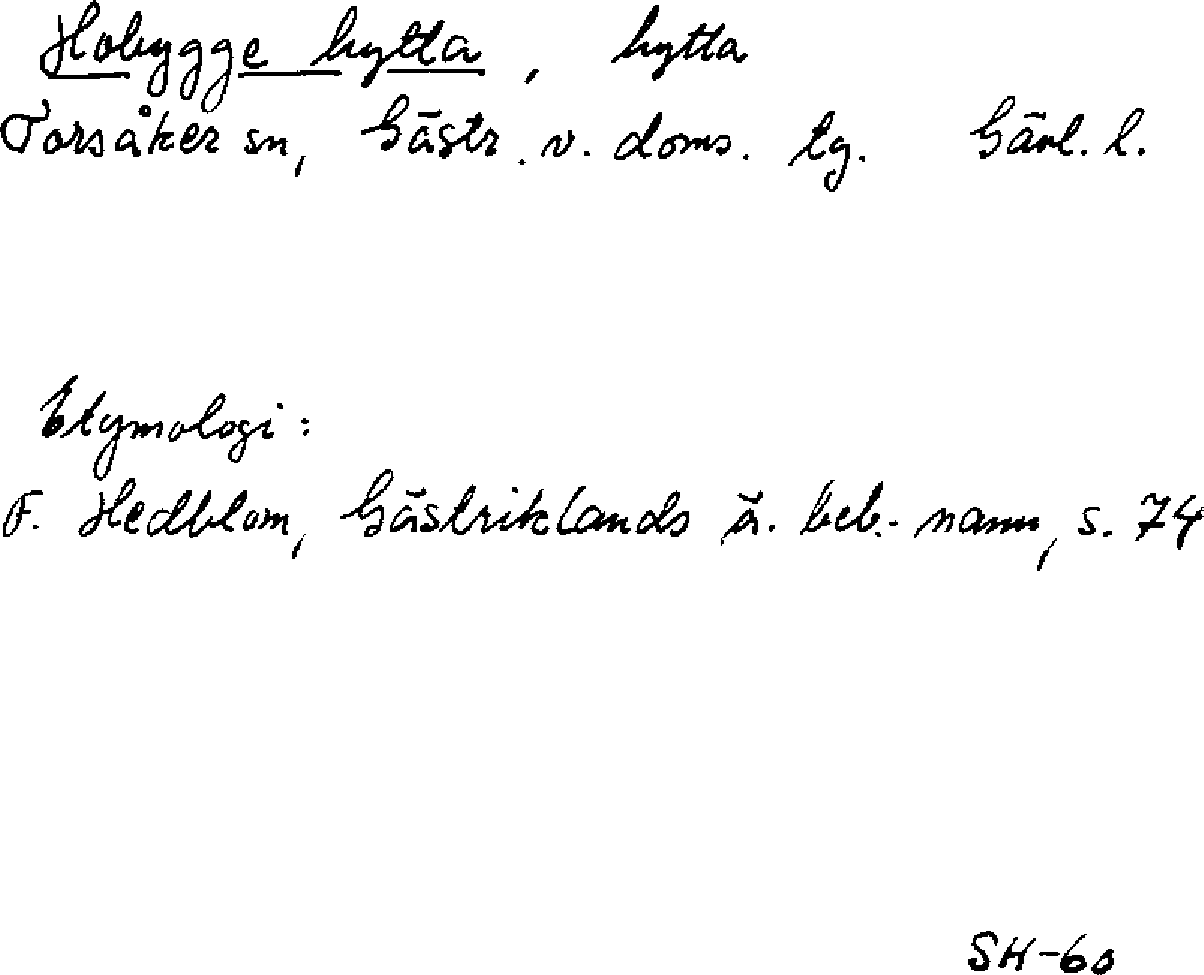 Hobygge hytta, hytta
Torsåker sn, Gästr. v. doms. tg. Gävl. l.
Etymologi:
F. Hedblom, Gästriklands ä. beb. namn, s. 74
SH-60